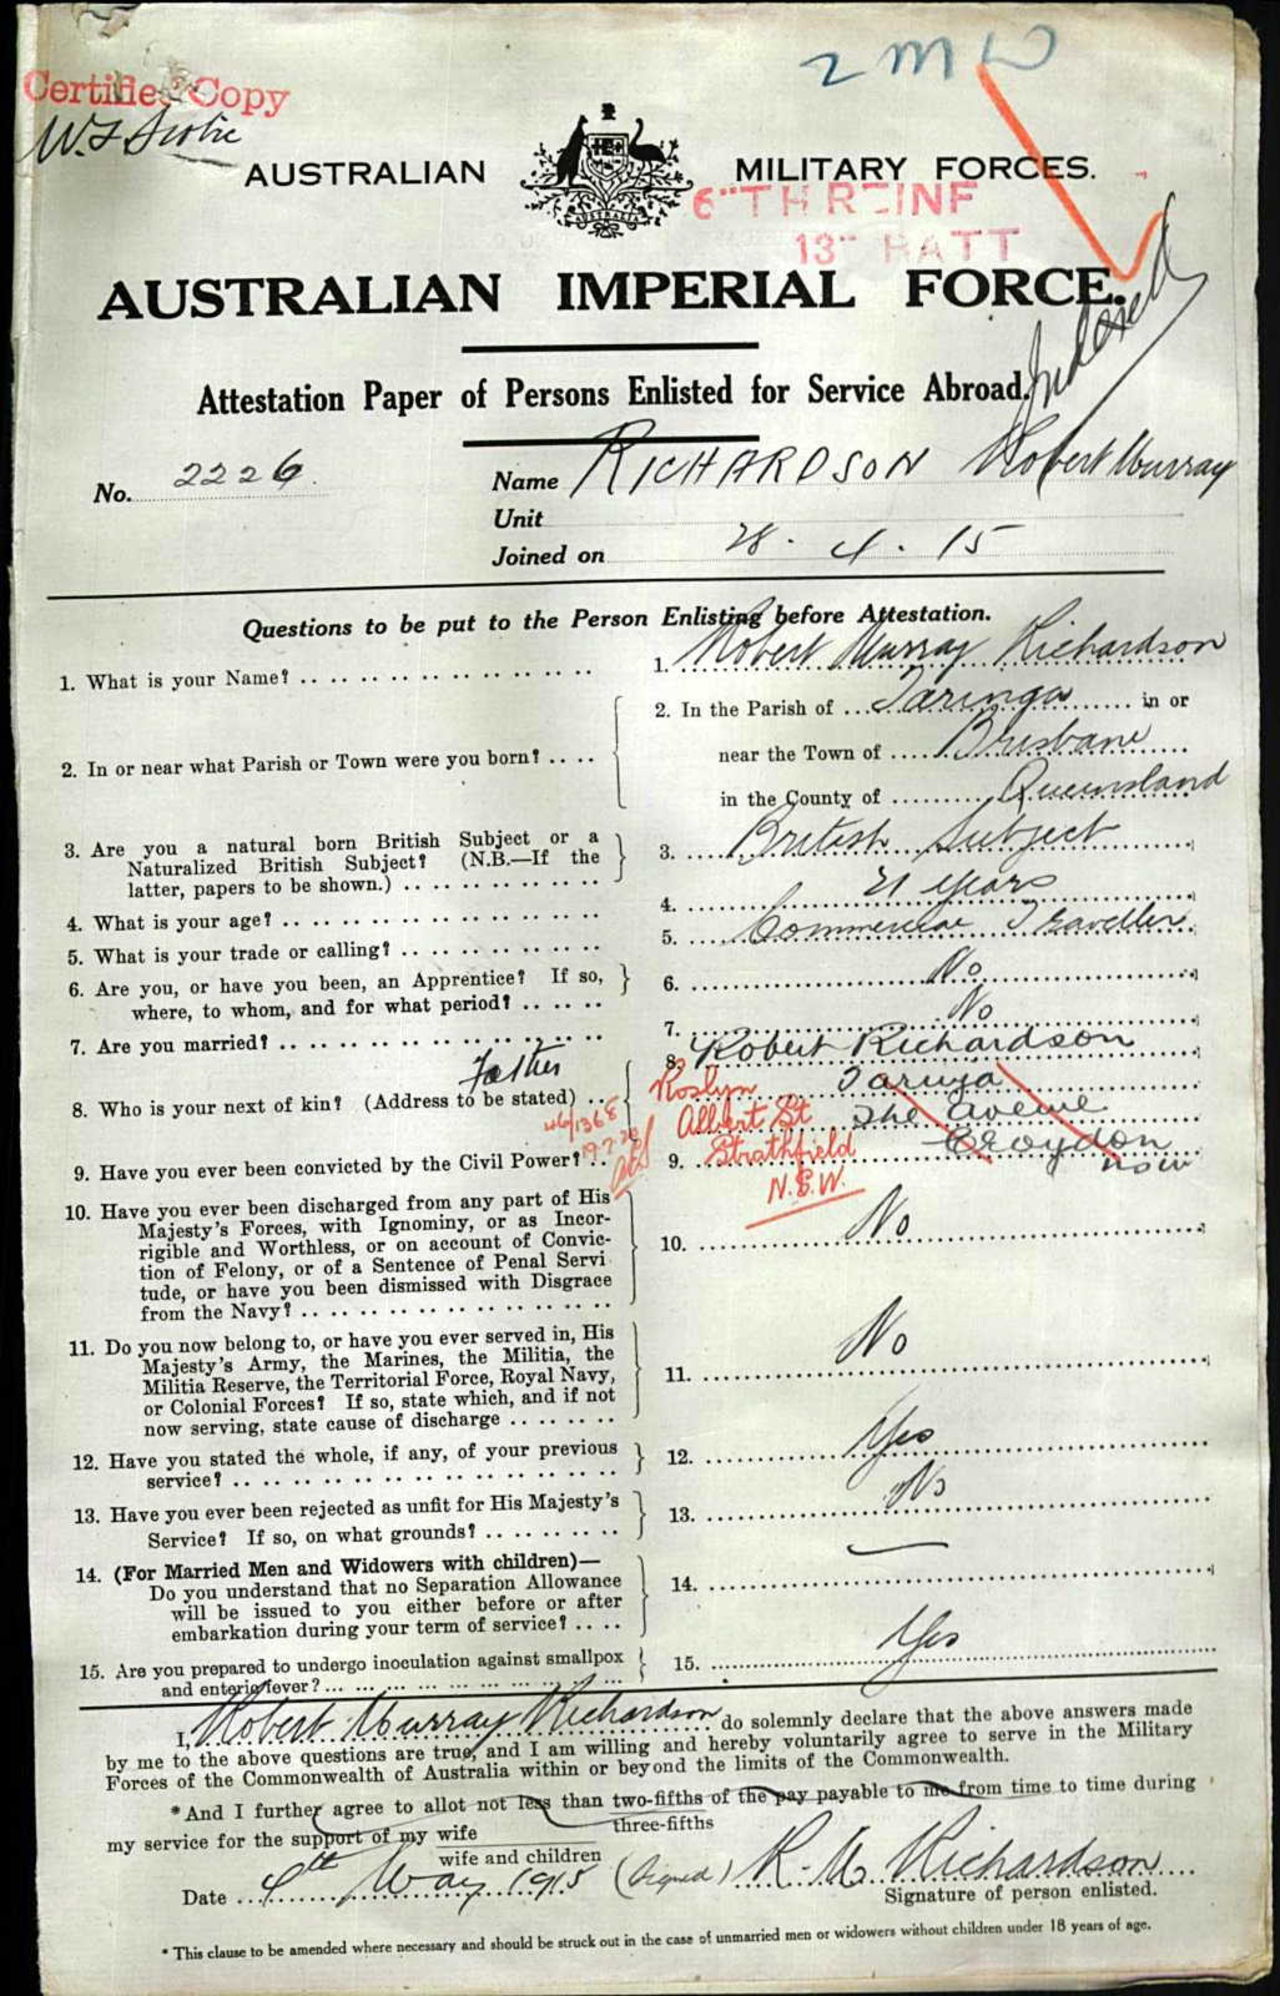 2 M D
Certified Copy
AUSTRALIAN MILITARY FORCES.
AUSTRALIA
6"TH REINF
13" BATT
AUSTRALIAN IMPERIAL FORCE.
Indexed
Attestation Paper of Persons Enlisted for Service Abroad.
No. 2226
Name RICHARDSON Robert Murray
Unit
Joined on 28. 4. 15
Questions to be put to the Person Enlisting before Attestation.
1. What is your Name? 1. Robert Murray Richardson
2. In or near what Parish or Town were you born? 2. In the Parish of Taringa in or
near the Town of Brisbane
in the County of Queensland
3. Are you a natural born British Subject or a
Naturalized British Subject? (N.B.—If the
latter, papers to be shown.) 3. British Subject
4. What is your age? 4. 21 years
5. What is your trade or calling? 5. Commercial Traveller
6. Are you, or have you been, an Apprentice? If so,
where, to whom, and for what period? 6. No
7. Are you married? 7. No
Father
8. Who is your next of kin? (Address to be stated) 8. Robert Richardson
The Avenue
Croydon
NSW
Roslyn
Albert St
Strathfield
N.S.W.
46/1368
9. Have you ever been convicted by the Civil Power? 9.
10. Have you ever been discharged from any part of His
Majesty's Forces, with Ignominy, or as Incor-
rigible and Worthless, or on account of Convic-
tion of Felony, or of a Sentence of Penal Servi
tude, or have you been dismissed with Disgrace
from the Navy? 10. No
11. Do you now belong to, or have you ever served in, His
Majesty's Army, the Marines, the Militia, the
Militia Reserve, the Territorial Force, Royal Navy,
or Colonial Forces? If so, state which, and if not
now serving, state cause of discharge 11. No
12. Have you stated the whole, if any, of your previous
service? 12. Yes
13. Have you ever been rejected as unfit for His Majesty's
Service? If so, on what grounds? 13. No
14. (For Married Men and Widowers with children)—
Do you understand that no Separation Allowance
will be issued to you either before or after
embarkation during your term of service? 14.
15. Are you prepared to undergo inoculation against smallpox
and enteric fever? 15. Yes
I, Robert Murray Richardson do solemnly declare that the above answers made
by me to the above questions are true, and I am willing and hereby voluntarily agree to serve in the Military
Forces of the Commonwealth of Australia within or beyond the limits of the Commonwealth.
*And I further agree to allot not less than two-fifths of the pay payable to me from time to time during
three-fifths
my service for the support of my wife
wife and children
Date 4th May 1915 (Signed) R. M. Richardson
Signature of person enlisted.
* This clause to be amended where necessary and should be struck out in the case of unmarried men or widowers without children under 18 years of age.